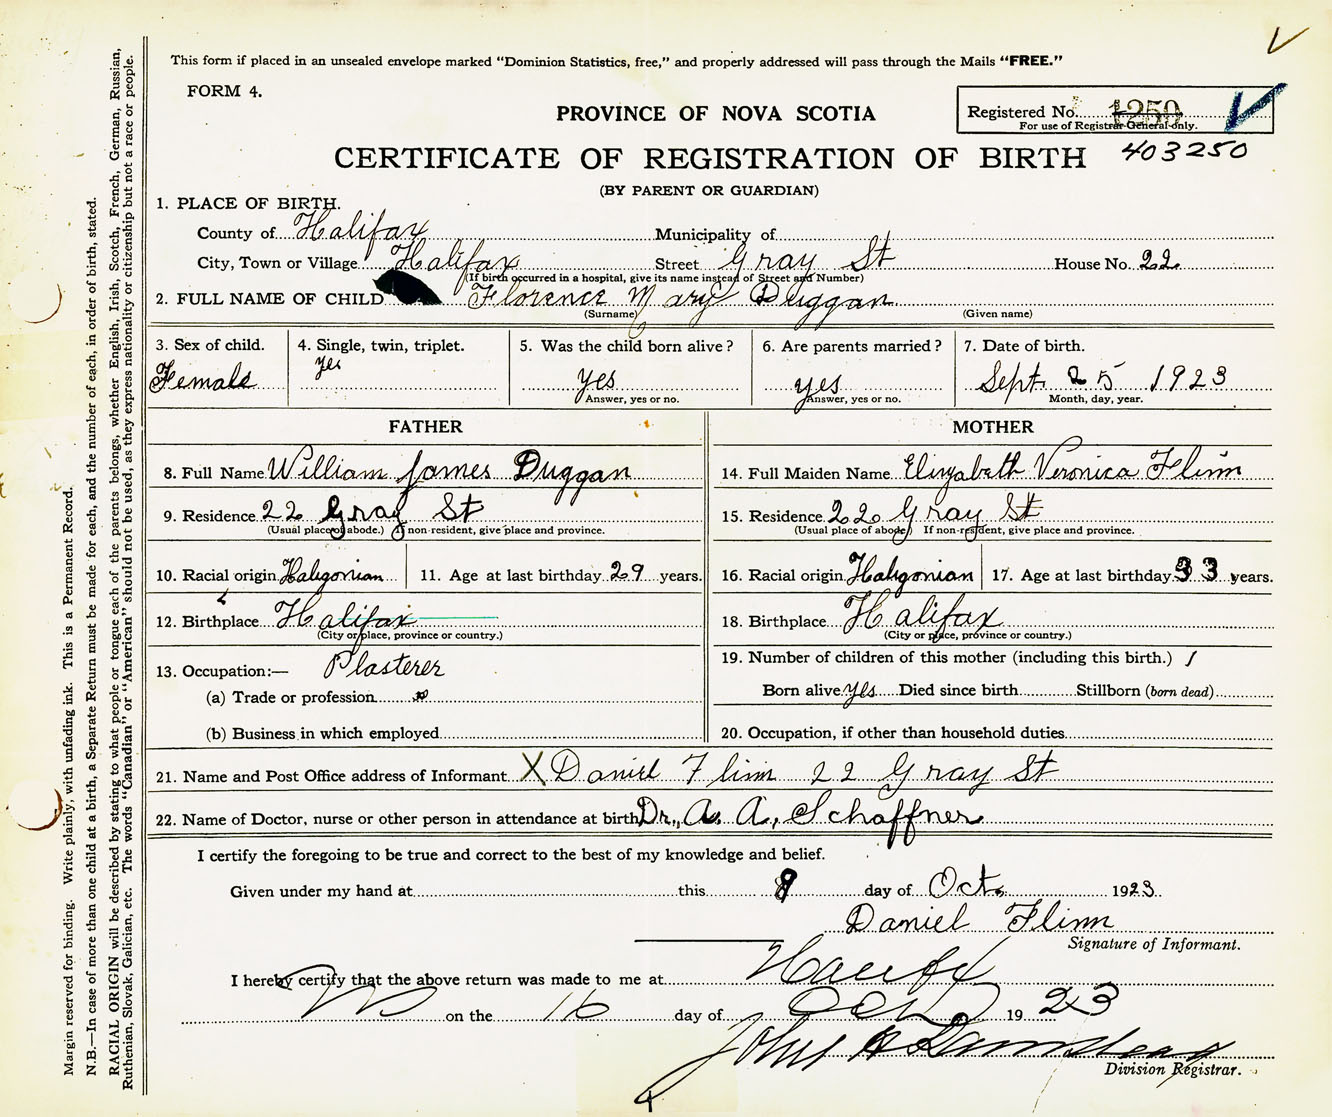 This form if placed in an unsealed envelope marked "Dominion Statistics, free," and properly addressed will pass through the Mails "FREE."
FORM 4.
PROVINCE OF NOVA SCOTIA
Registered No. 1250
For use of Registrar-General only.
CERTIFICATE OF REGISTRATION OF BIRTH 403250
(BY PARENT OR GUARDIAN)
1. PLACE OF BIRTH.
County of Halifax Municipality of
City, Town or Village Halifax Street Gray St House No. 22
(If birth occurred in a hospital, give its name instead of Street and Number)
2. FULL NAME OF CHILD Florence Mary Duggan
(Surname) (Given name)
3. Sex of child. 4. Single, twin, triplet. 5. Was the child born alive? 6. Are parents married? 7. Date of birth.
Female yes yes yes Sept. 25 1923
Answer, yes or no. Answer, yes or no. Month, day, year.
FATHER MOTHER
8. Full Name William James Duggan 14. Full Maiden Name Elizabeth Veronica Flinn
9. Residence 22 Gray St 15. Residence 22 Gray St
(Usual place of abode.) If non-resident, give place and province. (Usual place of abode) If non-resident, give place and province.
10. Racial origin Haligonian 11. Age at last birthday 29 years. 16. Racial origin Haligonian 17. Age at last birthday 33 years.
12. Birthplace Halifax 18. Birthplace Halifax
(City or place, province or country.) (City or place, province or country.)
13. Occupation:— Plasterer 19. Number of children of this mother (including this birth.) 1
(a) Trade or profession Born alive yes Died since birth Stillborn (born dead)
(b) Business in which employed 20. Occupation, if other than household duties
21. Name and Post Office address of Informant X Daniel Flinn 22 Gray St
22. Name of Doctor, nurse or other person in attendance at birth Dr., A. A, Schaffner
I certify the foregoing to be true and correct to the best of my knowledge and belief.
Given under my hand at this 9 day of Oct. 1923
Daniel Flinn
Signature of Informant.
I hereby certify that the above return was made to me at Halifax
on the 16 day of Oct 1923
John
Division Registrar.
Margin reserved for binding. Write plainly, with unfading ink. This is a Permanent Record.
N.B.—In case of more than one child at a birth, a Separate Return must be made for each, and the number of each, in order of birth, stated.
RACIAL ORIGIN will be described by stating to what people or tongue each of the parents belongs, whether English, Irish, Scotch, French, German, Russian,
Ruthenian, Slovak, Galician, etc. The words "Canadian" or "American" should not be used, as they express nationality or citizenship but not a race or people.